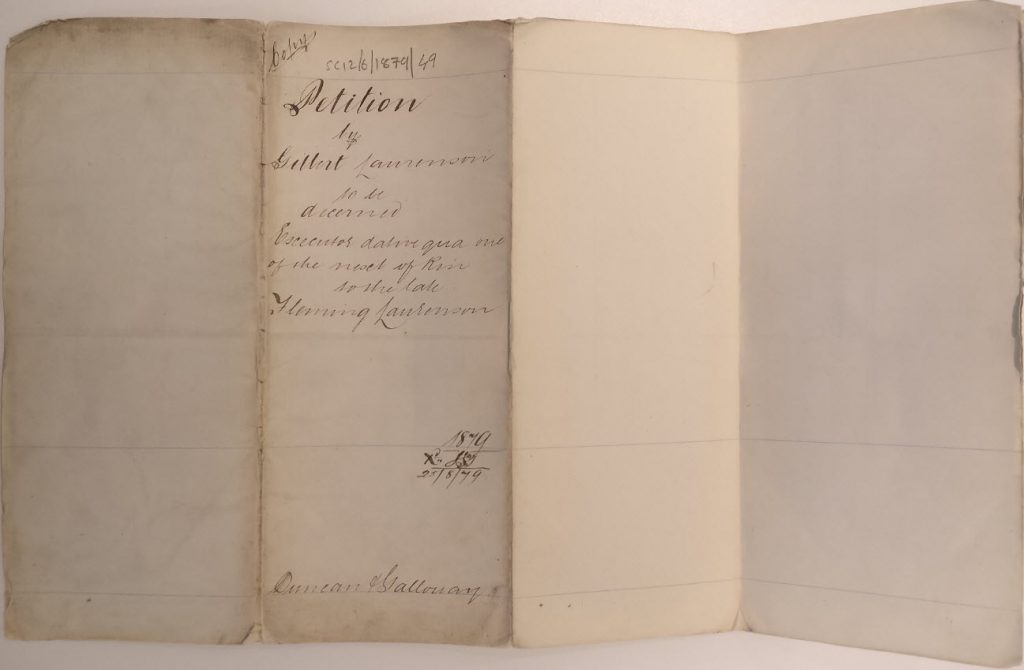 Copy
SC12/6/1879/49
Petition
by
Gilbert Laurenson
to be
decerned
Executor dative qua one
of the next of Kin
to the late
Fleming Laurenson
1879
21/8/79
Duncan & Galloway